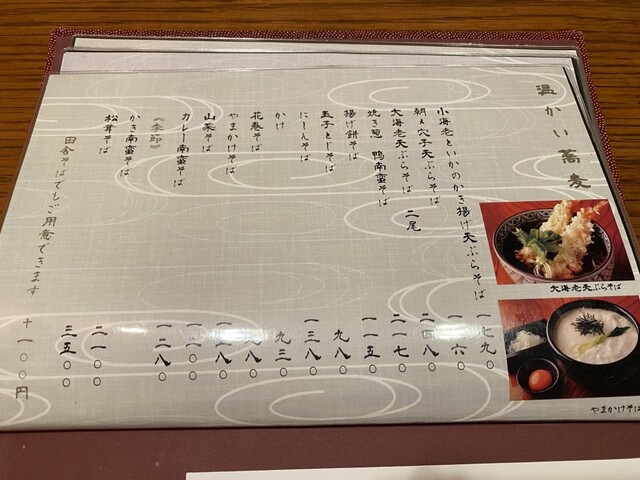 温かい蕎麦
小海老といかのかき揚げ天ぷらそば 一七九〇
朝〆穴子天ぷらそば
大海老天ぷらそば 二尾 二四八〇
焼き葱 鴨南蛮そば 二一七〇
揚げ餅そば 一一五〇
玉子とじそば 九八〇
にしんそば 一三八〇
かけ 九三〇
花巻そば
やまかけそば
山菜そば
カレー南蛮そば 一二八〇
《季節》
かき南蛮そば 二一〇〇
松茸そば 三五〇〇
田舎そばでもご用意できます +一〇〇円
大海老天ぷらそば
やまかけそば